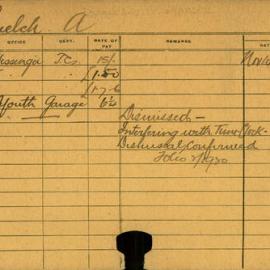 uelch A
OFFICE DEPT. DATE OF PAY REMARKS DAT
essenger T.Cs. 15/- Nov
" " £1.5.0
" " £1.7.6
Youth Garage 6/2 Dismissed -
Interfering with Time Clock.
Dismissal Confirmed
Folio 2/1930